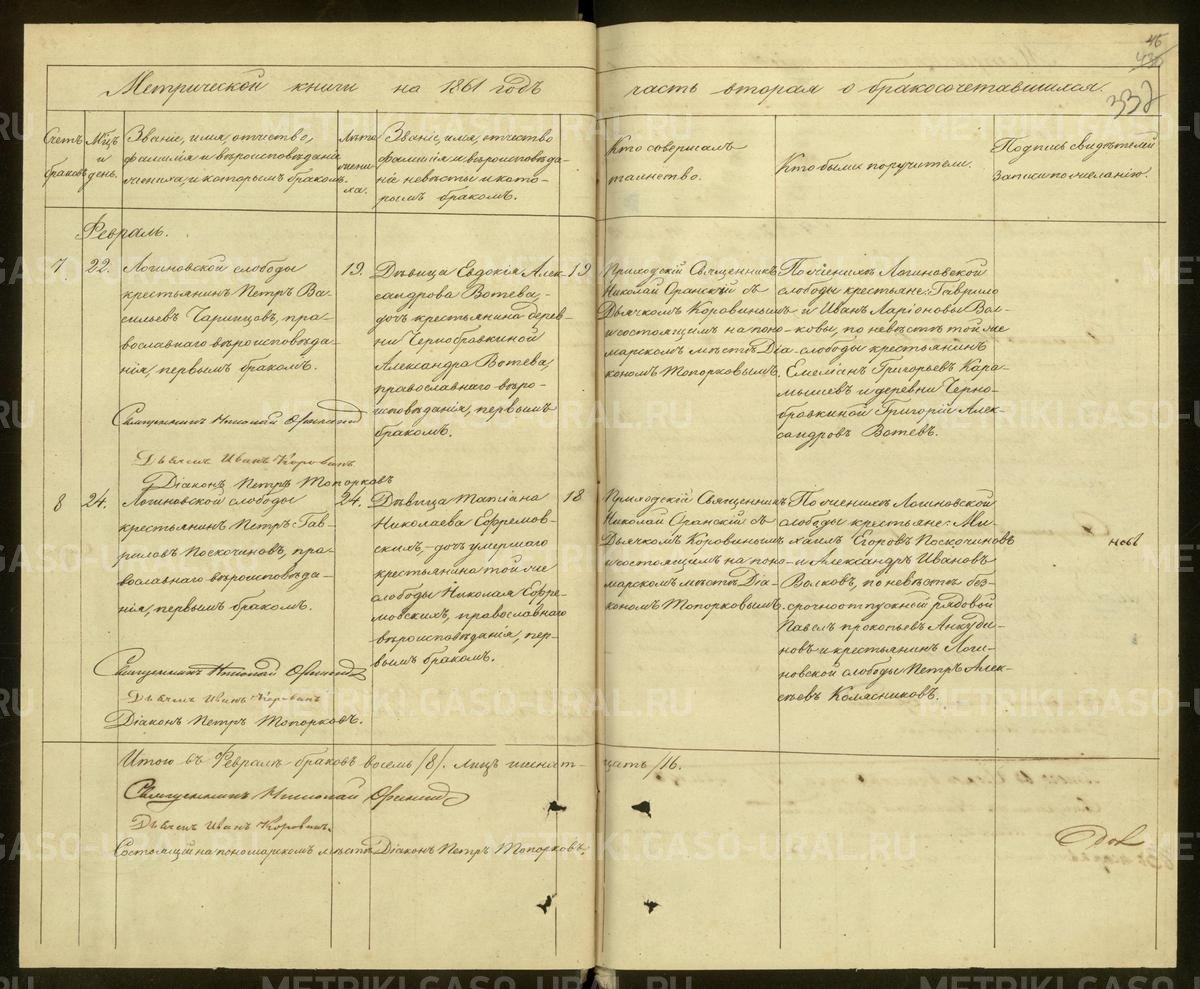 46
332
Метрической книги на 1861 годъ часть вторая о бракосочетавшихся.
Счетъ
браковъ
Мц̃ъ
и
день.
Званіе, имя, отчество,
фамилія и вѣроисповѣданіе
жениха, и которымъ бракомъ.
Лѣта
жени-
ха.
Званіе, имя, отчество
фамилія и вѣроисповѣда-
ніе невѣсты и кото-
рымъ бракомъ.
Кто совершалъ
таинство.
Кто были поручители.
Подпись свидѣтелей
записи по желанію.
Февраль.
7
22.
Логиновской слободы
крестьянинъ Петръ Ва-
сильевъ Чарипцовъ, пра-
вославнаго вѣроисповѣда-
нія, первымъ бракомъ.
19.
Дѣвица Евдокія Алек-
сандрова Вотева,-
дочь крестьянина дерев-
ни Чернобравкиной
Александра Вотева,
православнаго вѣро-
исповѣданія, первымъ
бракомъ.
19
Приходскій Священникъ
Николай Оранскій съ
Дьячкомъ Коровинымъ
и состоящимъ на поно-
марскомъ мѣстѣ Діа-
кономъ Топорковымъ.
По женихѣ Логиновской
слободы крестьяне: Гаврило
и Иванъ Ларіоновы Вол-
ковы, по невѣстѣ той же
слободы крестьянинъ
Емеліанъ Григорьевъ Кара-
мышевъ и деревни Черно-
бравкиной Григорій Алек-
сандровъ Вотевъ.
Священникъ Николай Оранскій
Дьячекъ Иванъ Коровинъ
Діаконъ Петръ Топорковъ
8
24.
Логиновской слободы
крестьянинъ Петръ Гав-
риловъ Поскочиновъ, пра-
вославнаго вѣроисповѣда-
нія, первымъ бракомъ.
24.
Дѣвица Татіана
Николаева Ефремов-
скихъ,-дочь умершаго
крестьянина той же
слободы Николая Ефре-
мовскихъ, православнаго
вѣроисповѣданія, пер-
вымъ бракомъ.
18
Приходскій Священникъ
Николай Оранскій съ
Дьячкомъ Коровинымъ
и состоящимъ на поно-
марскомъ мѣстѣ Діа-
кономъ Топорковымъ.
По женихѣ Логиновской
слободы крестьяне: Ми-
хаилъ Егоровъ Поскочиновъ
и Александръ Ивановъ
Волковъ, по невѣстѣ без-
срочноотпускной рядовой
Павелъ Прокопьевъ Анкуди-
новъ и крестьянинъ Логи-
новской слободы Петръ Алек-
сѣевъ Колясниковъ.
Священникъ Николай Оранскій
Дьячекъ Иванъ Коровинъ
Діаконъ Петръ Топорковъ.
Итого въ Февралѣ браковъ восемь /8/. лицъ шестнад-
цать /16.
Священникъ Николай Оранскій
Дьячекъ Иванъ Коровинъ.
Состоящій на пономарскомъ мѣстѣ Діаконъ Петръ Топорковъ.
METRIKI.GASO-URAL.RU